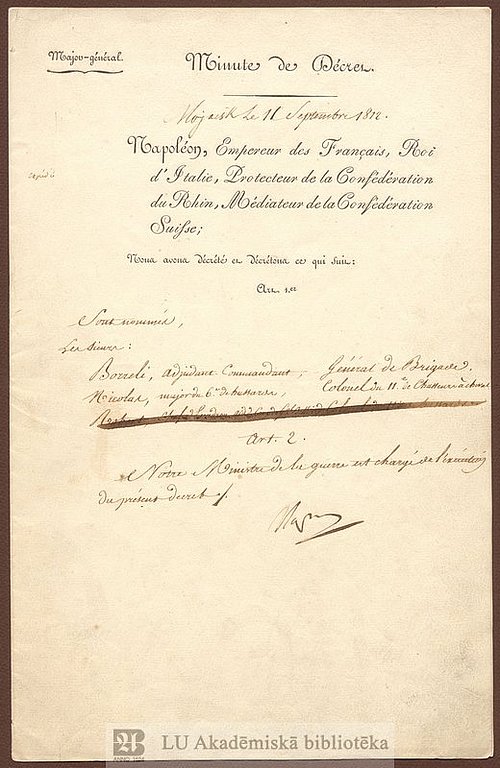 Major-général.
Minute de Décret.
Mojaïsk Le 11 Septembre 1812.
Napoléon, Empereur des Français, Roi
d'Italie, Protecteur de la Confédération
du Rhin, Médiateur de la Confédération
Suisse;
expédié
Nous avons décrété et Décrétons ce qui suit:
Art. 1.er
Sont nommés,
Les Sieurs:
Borreli, adjudant Commandant, Général de Brigade.
Nicolas, major du 6.e de hussards, Colonel du 11.e de Chasseurs à cheval
Art. 2.
Notre Ministre de la guerre est chargé de l'exécution
du présent décret ./.
Nap
LU Akadēmiskā bibliotēka
ANNO 1524